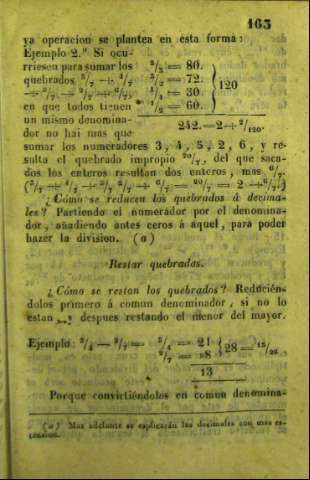 163
ya operacion se plantea en esta forma:
Ejemplo 2.º Si ocu-
rriesen para sumar los 2/3 = 80.
quebrados 3/7 + 4/7 3/5 = 72.
+ 3/7 + 2/7 + 6/7, 1/4 = 30 120
en que todos tienen 1/2 = 60.
un mismo denomina-
dor no hai mas que 242. = 2 + 2/120.
sumar los numeradores 3, 4, 5, 2, 6, y re-
sulta el quebrado impropio 20/7, del que saca-
dos los enteros resultan dos enteros, mas 6/7.
(3/7 + 4/7 + 5/7 2/7 + 6/7 = 20/7 = 2 + 6/7.)
¿Cómo se reducen los quebrados á decima-
les? Partiendo el numerador por el denomina-
dor, añadiendo antes ceros á aquel, para poder
hazer la division. (a)
Restar quebrados.
¿Cómo se restan los quebrados? Reducién-
dolos primero á comun denominador, si no lo
estan, y despues restando el menor del mayor.
Ejemplo: 3/4 — 2/7 = 3/4 = 21 28 =
2/7 = 8
13
Porque convirtiéndolos en comun denomina-
(a) Mas adelante se esplicarán las decimales con mas es-
tension.